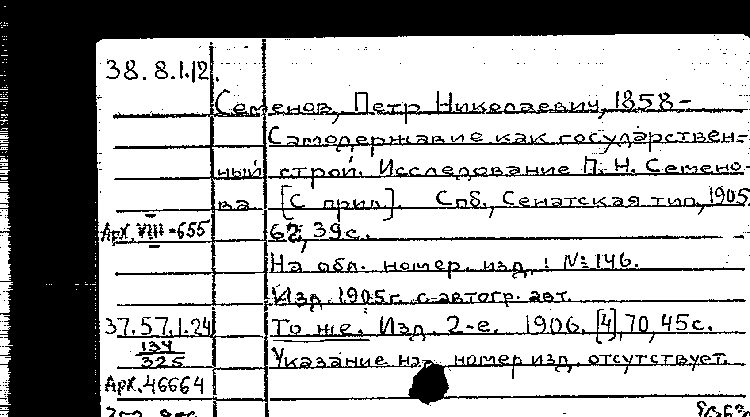 38.8.1.12.
Семенов, Петр Николаевич, 1858-
Самодержавие как государствен-
ный строй. Исследование П. Н. Семено-
ва. [С прил.]. Спб., Сенатская тип., 1905
Арх. VIII-655 62, 39с.
На обл. номер. изд.: №146.
Изд. 1905г. с автогр. авт.
37.57.1.24 То же. Изд. 2-е. 1906. [4], 70, 45с.
134 Указание на номер изд. отсутствует.
325
Арх. 46664